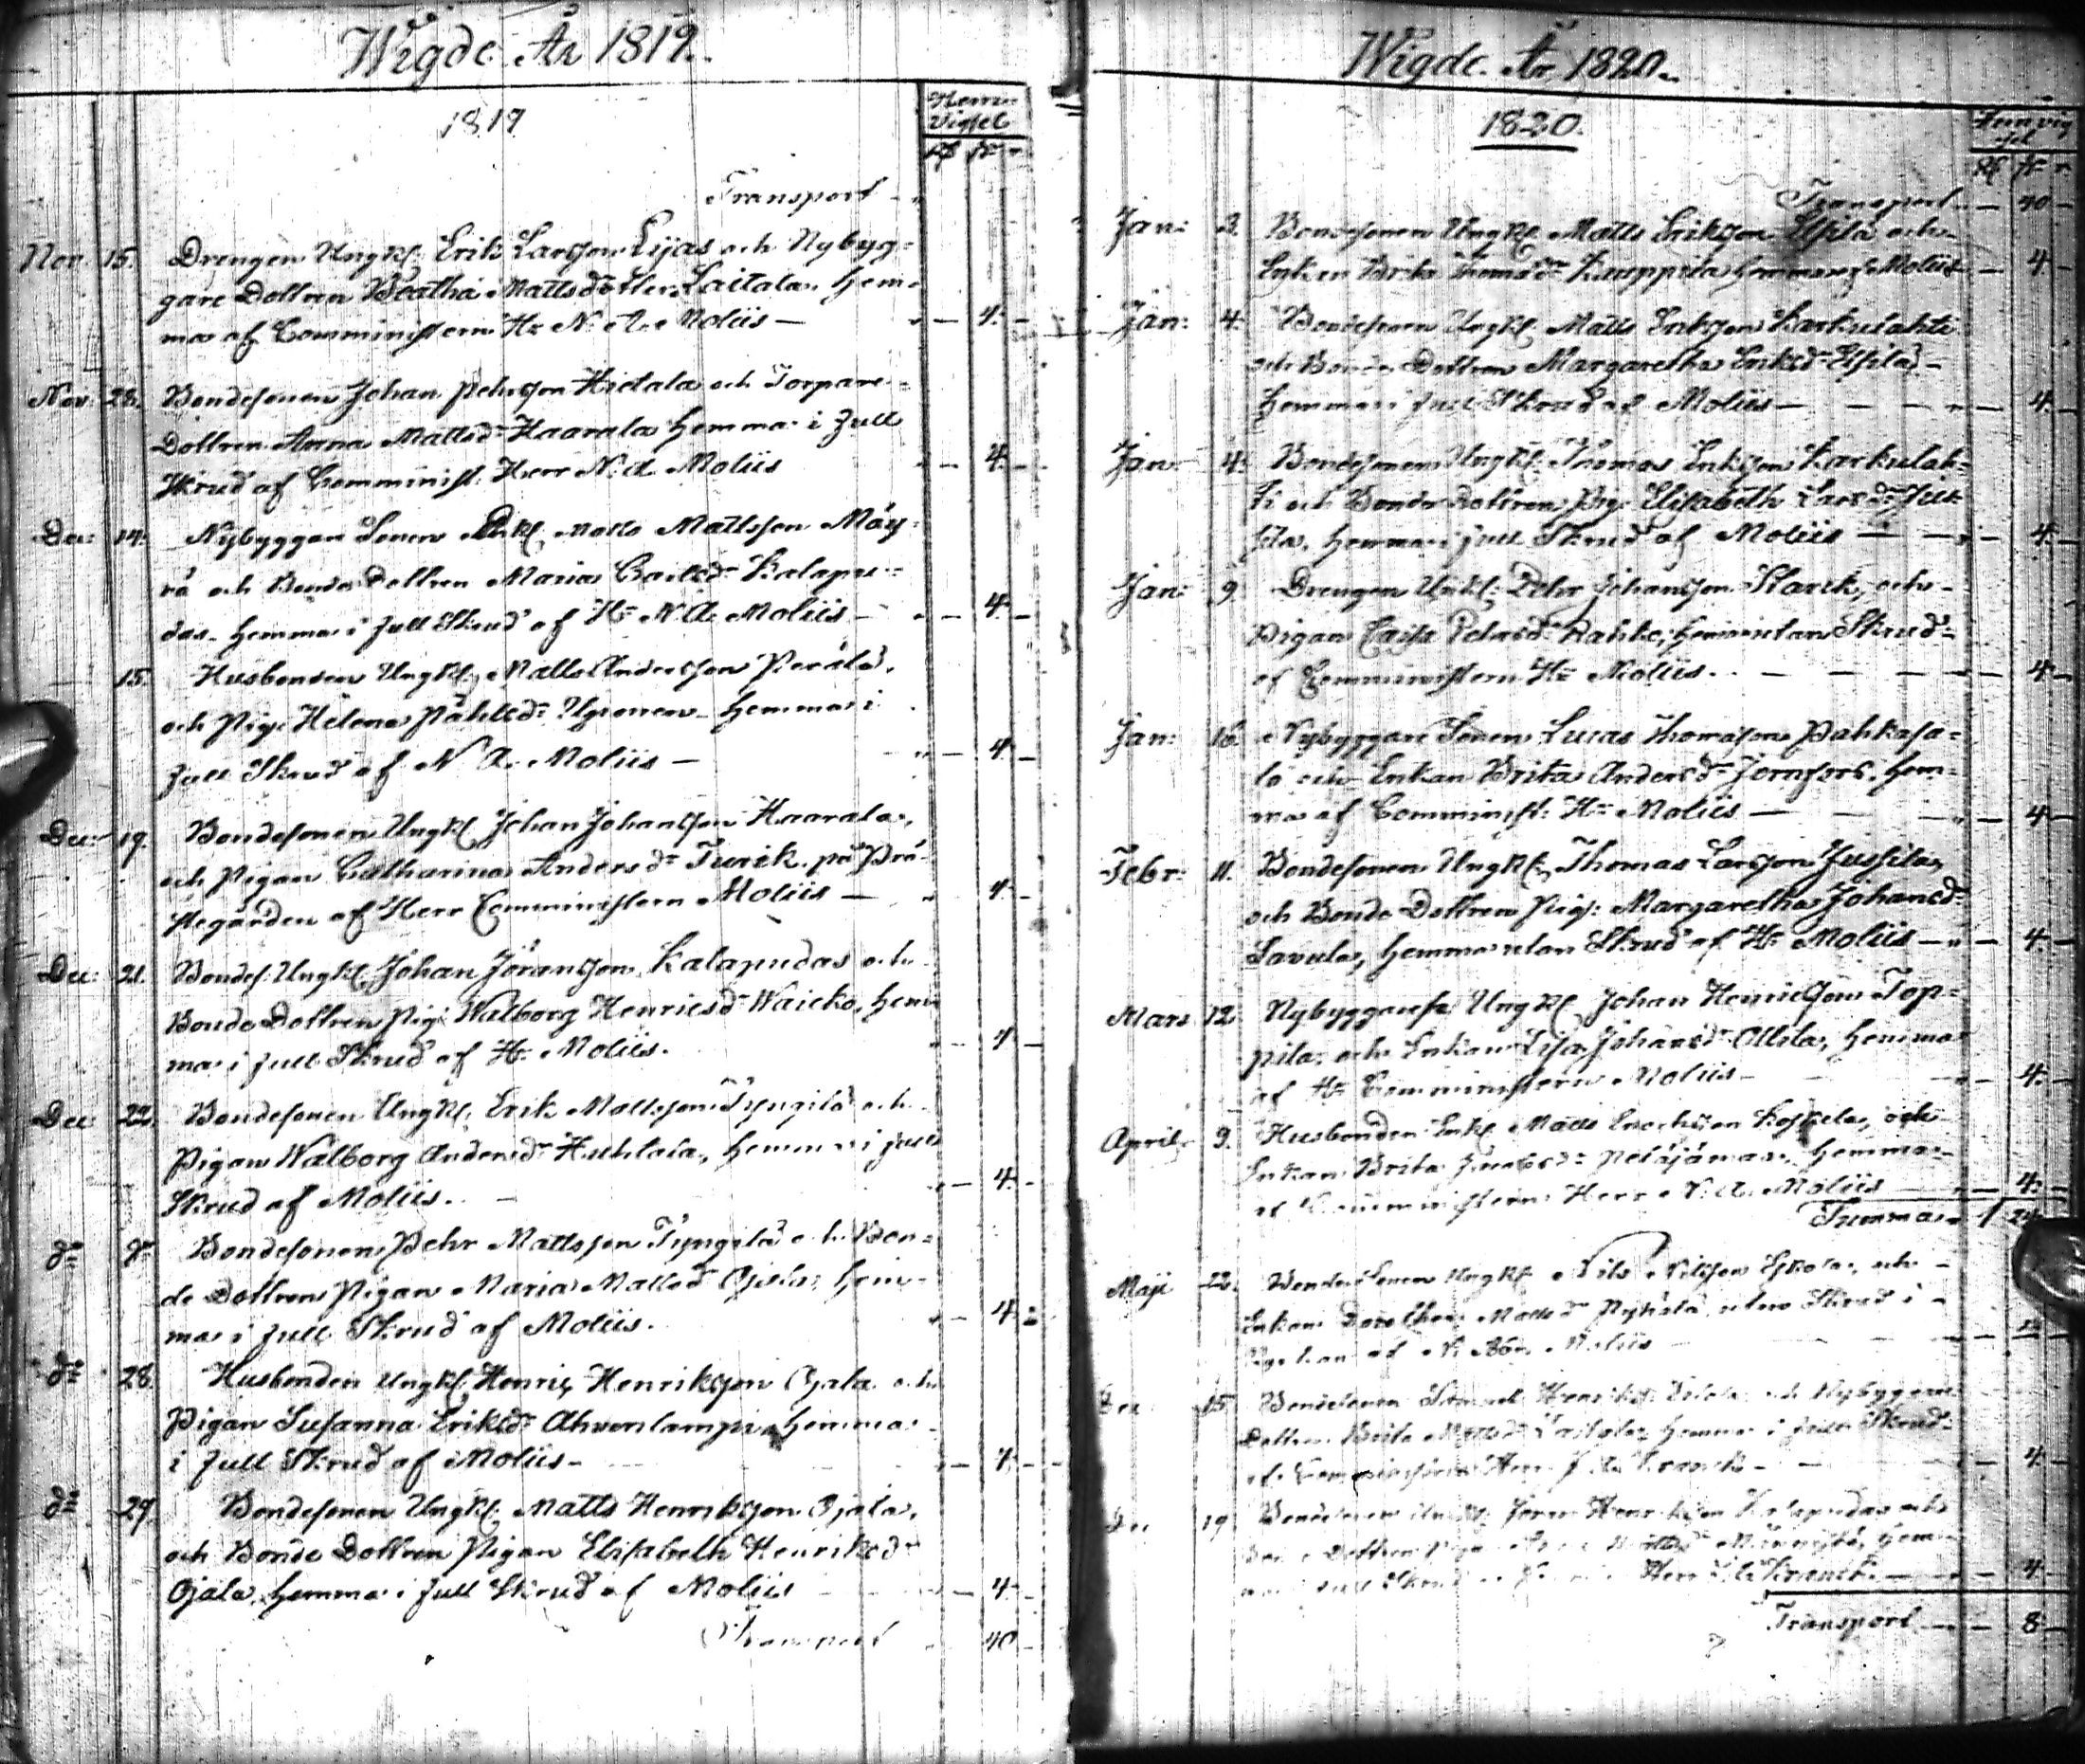 Wigde År 1819.
1819
Hem-
Vigsel
Transport
Nov. 15. Drengen Ungk. Erik Larsson Lijas och Nybyg=
gare Dottren Beatha Mattsdotter Laitala, hem-
ma af Comministern Hr N. A. Moliis — 4.
Nov. 28. Bondesonen Johan Pehrsson Hietala och Torpare=
Dottren Anna Mattsdr Haarala hemma i full
Skrud af Comminist. Herr N. A. Moliis 4.
Dec: 14. Nybyggare Sonen Enkl. Matts Mattsson Mäy=
rä och Bonde Dottren Maria Carlsdr Kalapu=
das hemma i full Skrud af Hr N. A. Moliis — 4.
15. Husbonden Ungkl. Matts Andersson Perälä,
och Pig. Helena Påhlsdr hemma i
full Skrud af N A. Moliis — 4.
Dec: 19. Bondesonen Ungkl Johan Johansson Haarala,
och Pigan Catharina Andersdr Turik på Prä-
stegården af Herr Comministern Moliis — 4.
Dec: 21. Bondes. Ungkl. Johan Jöransson Kalapudas och
Bonde Dottren Pig: Walborg Henricsdr Waicko, hem
ma i full Skrud af Hr Moliis. 4
Dec: 22. Bondesonen Ungkl. Erik Mattsson Tyngilä och
Pigan Walborg Andersdr Huhtala, hemma i full
Skrud af Moliis. — 4.
dr dr Bondesonen Pehr Mattsson Tyngilä och Bon=
de Dottren Pigan Maria Mattsdr Ojala, hem-
ma i full Skrud af Moliis. 4
do 28. Husbonden Ungkl. Henric Henriksson Ojala och
Pigan Susanna Eriksdr Ahvenlampi hemma
i full Skrud af Moliis — 4.
do 29. Bondesonen Ungkl. Matts Henriksson Ojala,
och Bonde Dottren Pigan Elisabeth Henriksdr
Ojala, hemma i full Skrud af Moliis 4.
Transport 40
Wigde År 1820.
1820.
Hemvig
sel
Transport — 40 —
Jan: 2. Bondesonen Ungkl. Matts Eriksson Elfsilä och
Enkan Brita Thomsdr Kauppila hemma af Moliis — 4 —
Jan: 4. Bondesonen Ungkl. Matts Eriksson Karkulahti
och Bonde Dottren Margaretha Eriksdr Elfsilä —
hemma i full Skrud af Moliis — 4.
Jan: 4. Bondesonen Ungkl. Thomas Eriksson Karkulah=
ti och Bonde Dottren Pig. Elisabeth Larsdr Jus-
sila, hemma i full Skrud af Moliis — 4.
Jan: 9 Drengen Unkl: Pehr Johansson Starck, och
Pigan Caisa Pehrsdr Rahko, hemma utan Skrud
af Comministern Hr Moliis. — 4 —
Jan: 16. Nybyggare Sonen Lucas Thomasson Pahkasa=
lo och Enkan Brita Andersdr Jernfors, hem-
ma af Comminist: Hr Moliis — 4 —
Febr: 11. Bondesonen Ungkl. Thomas Larsson Jussila,
och Bonde Dottren Pig: Margaretha Johansdr
Savula, hemma utan Skrud af Hr Moliis — 4 —
Mars 12 Nybyggares. Ungkl. Johan Henricsson Top=
pila, och Enkan Lisa Johansdr Ollila, hemma
af Hr Comministern Moliis — 4. —
April 9. Husbonden Enkl. Matts Enochsson Koskela, och
Enkan Brita hemma
af Comministern Herr N. A. Moliis — 4. —
Summa 1 24
Maji 22. Bonde Sonen Ungkl. Nils Nilsson Eskola, och
Enkan Dorothea Mattsdr utan Skrud i
af Moliis
Dec 15 Bondesonen Samuel och Nybyggare
Dottren Brita Mattsdr Laitala, hemma i full Skrud
af Comministern Herr Franck — 4 —
Dec 19 Bondesonen Ungkl. Jöran Henriksson Kalapudas och
Bonde Dottren hem-
ma i full Skrud Herr Franck. — 4
Transport — 8 —